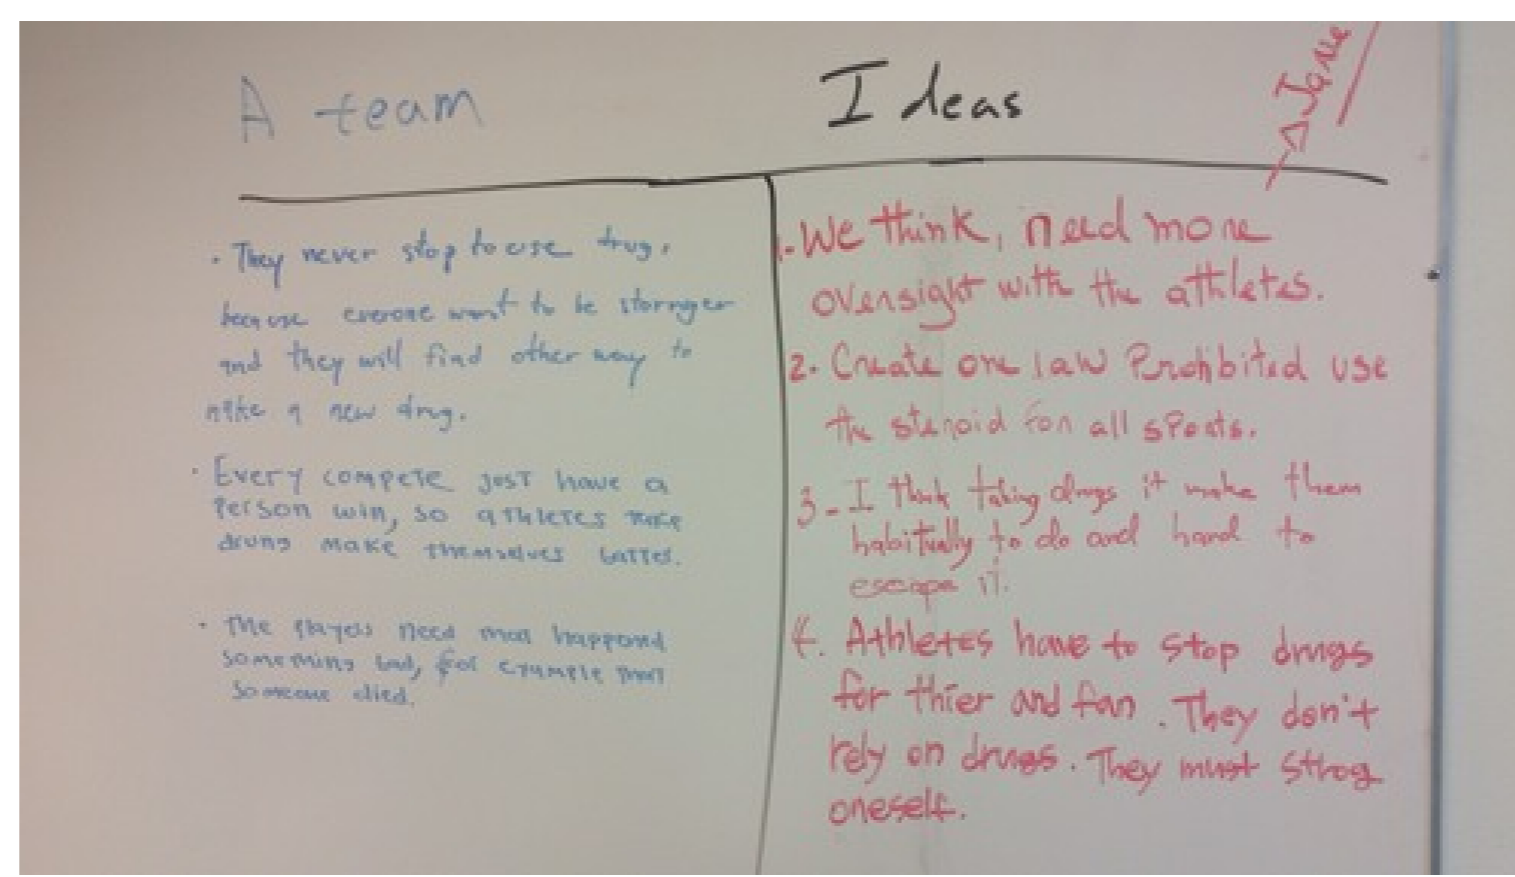 A team
Ideas
→ Jane
• They never stop to use drug,
because everone want to be stornger
and they will find other way to
make a new drug.
• Every compete just have a
person win, so athletes take
drung make themselves batter.
• The players need mad happond
something bad, for example that
someone died.
1. We think, need more
oversight with the athletes.
2. Create one law Prohibited use
the steroid for all sports.
3 - I think taking drugs it make them
habitually to do and hard to
escape it.
4. Athletes have to stop drugs
for thier and fan. They don't
rely on drugs. They must strog
oneself.